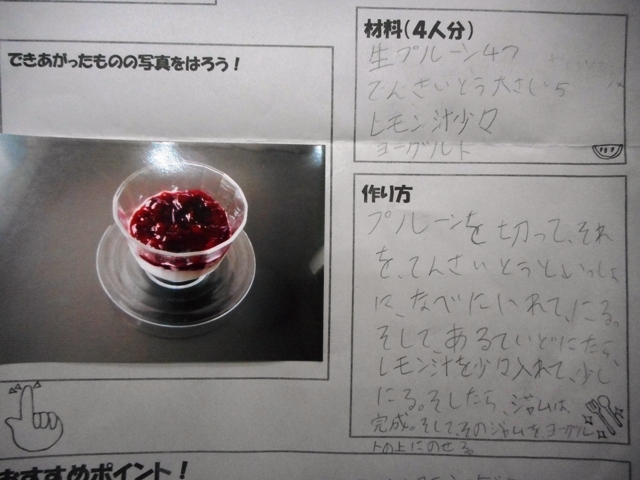 できあがったものの写真をはろう！
材料(４人分)
生プルーン4つ
てんさいとう大さじ5
レモン汁少々
ヨーグルト
作り方
プルーンを切って、それ
を、てんさいとうといっしょ
に、なべにいれて、にる。
そして、あるていどにたら、
レモン汁を少々入れて、少し
にる。そしたら、ジャムは
完成。そして、そのジャムを、ヨーグル
トの上にのせる。
おすすめポイント！